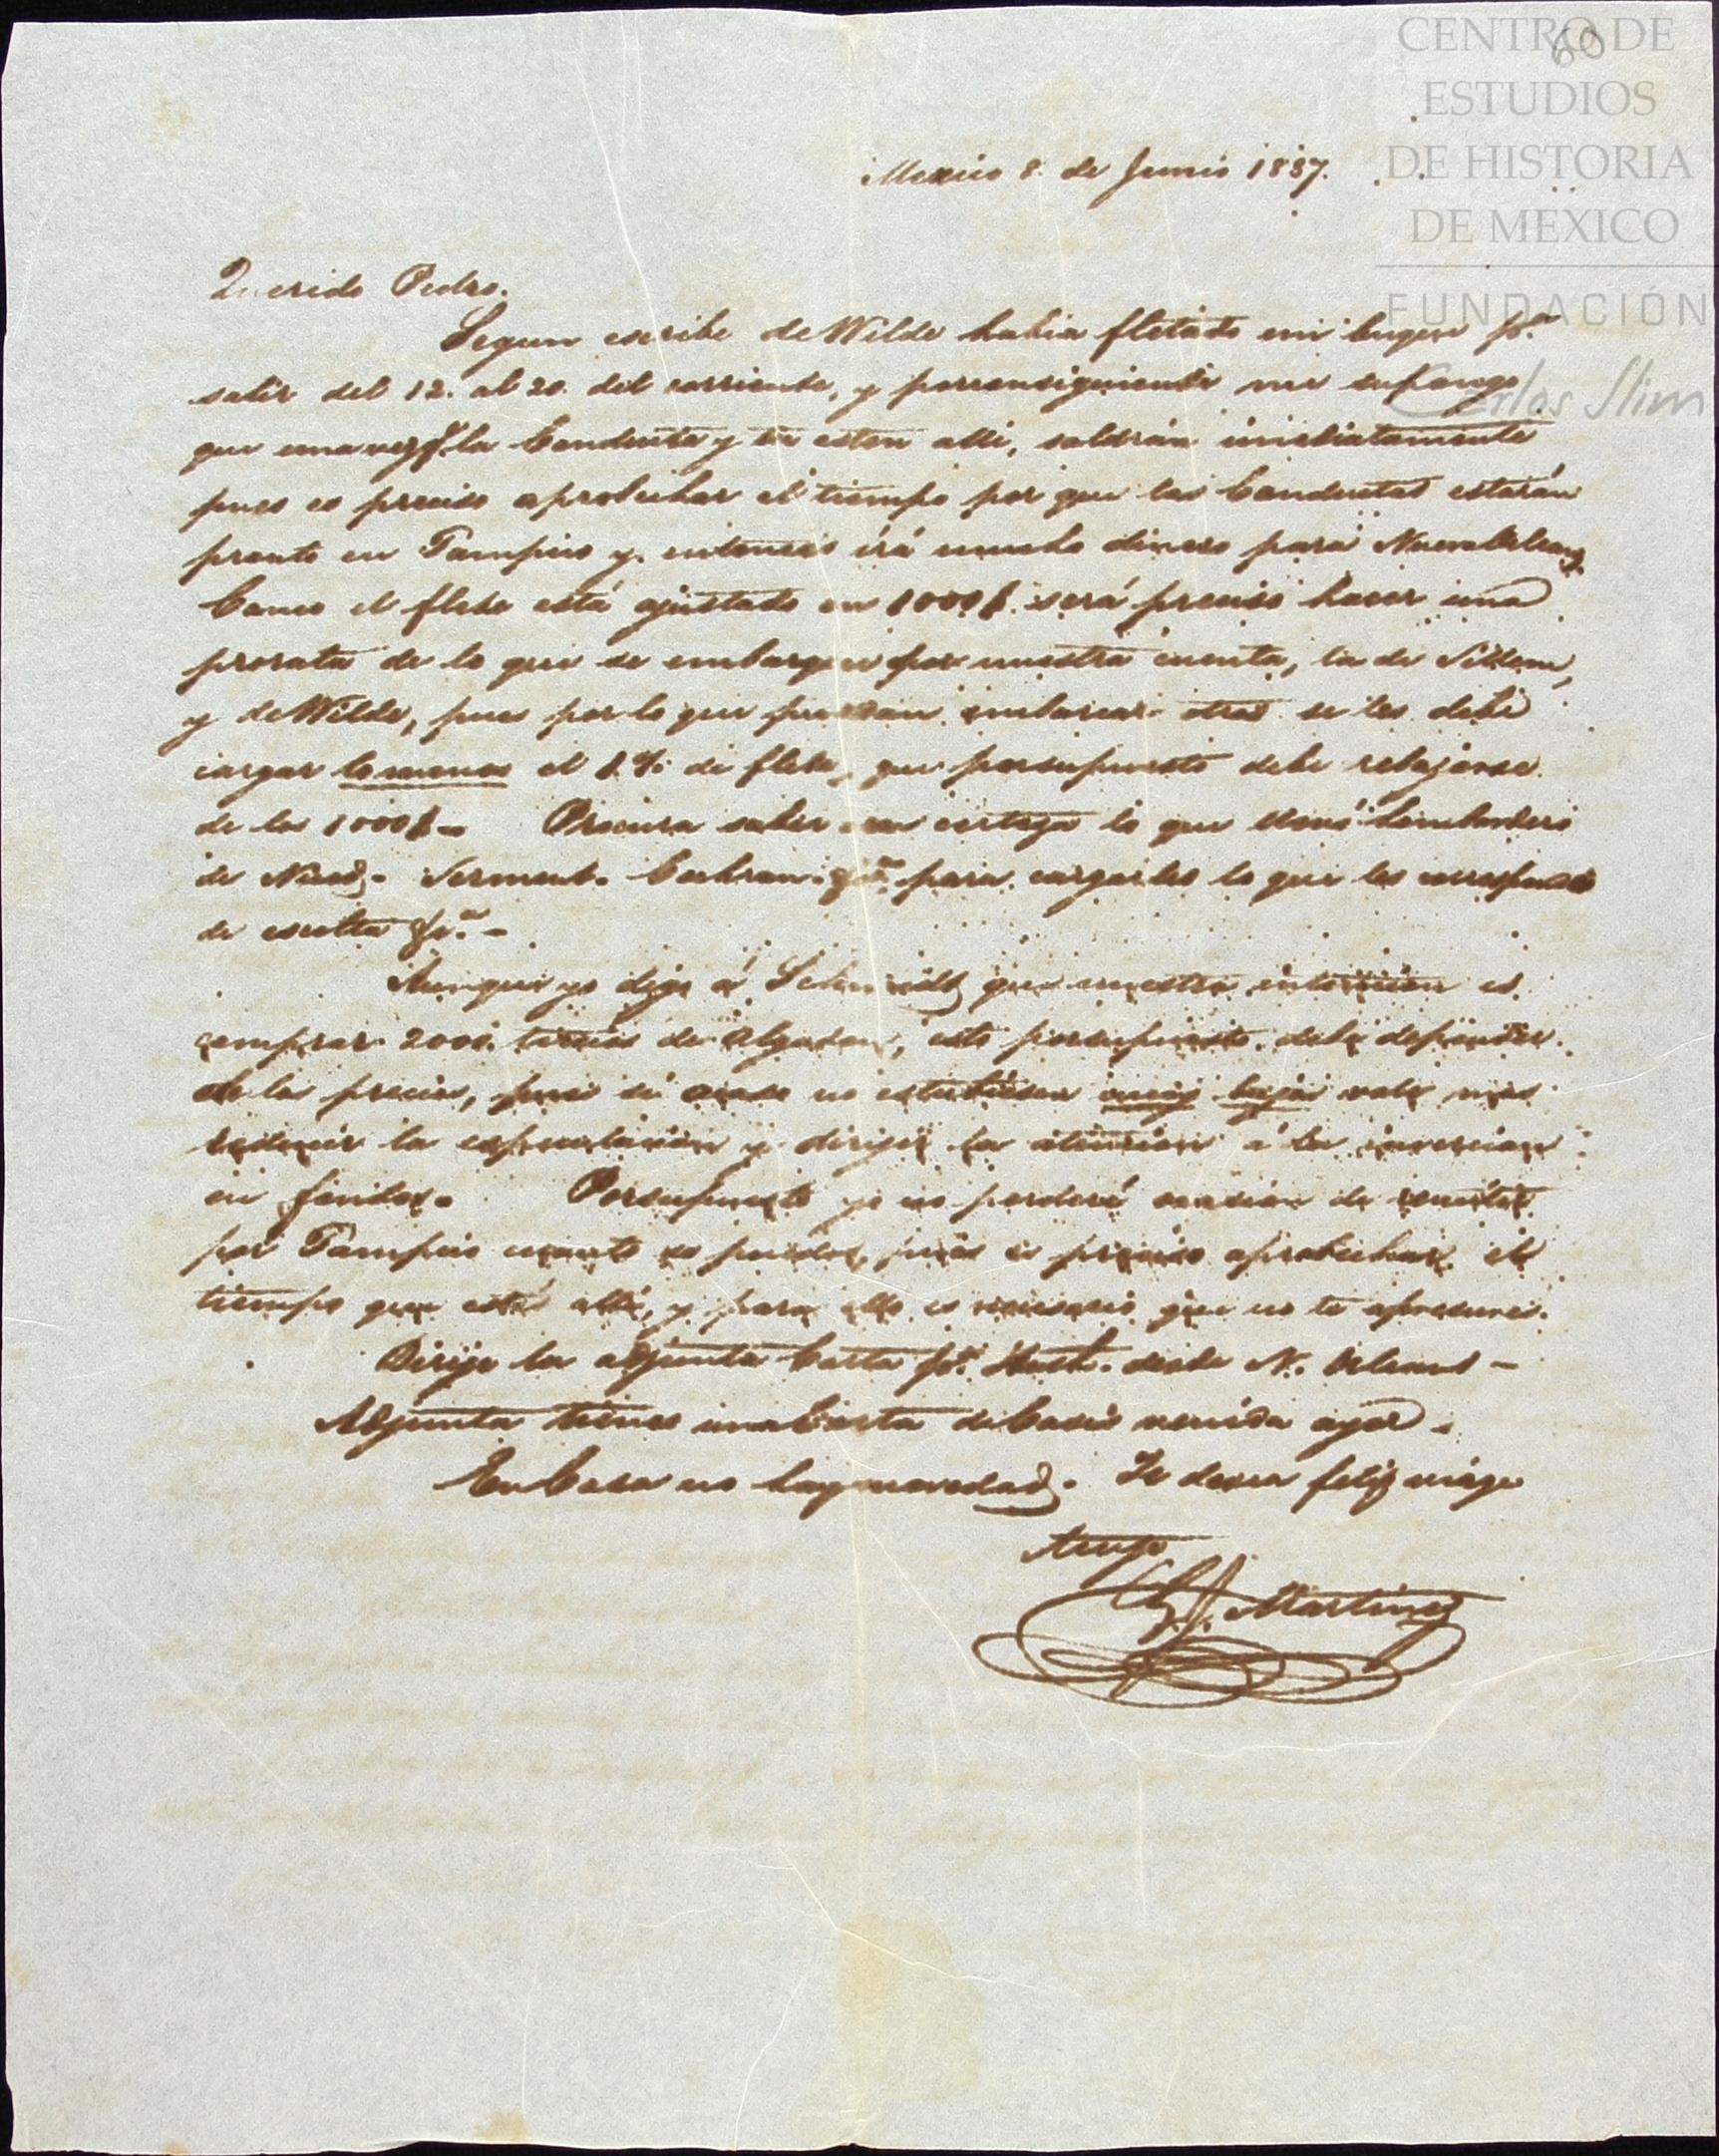 60
CENTRO DE
ESTUDIOS
DE HISTORIA
DE MEXICO
FUNDACIÓN
Carlos Slim
Mexico 8. de Junio 1837.
Querido Pedro.
Segun escribe de Wilde habia fletado un buque pª
salir del 12. al 20. del corriente, y porconsiguiente me supongo
que una vez q. la Conducta y tu esten alli, saldrán
pues es preciso aprobechar el tiempo por que las Conductas estarán
pronto en Tampico y entonces irá mucho dinero para Nueva Orleans
Como el flete está ajustado en 1000$. será preciso hacer una
prorata de lo que se embarque por nuestra cuenta, la de
y de Wilde, pues por lo que puedan embarcar otros se les debe
cargar lo menos el 1.% de flete, que porsupuesto debe rebajarse
de los 1000$ - Procura saber con certeza lo que llevó
de para cargarles lo que les corresponde
de escolta &ª. -
Aunque yo dije á Schmidt que nuestra intencion es
comprar 2000. tercios de Algodon, esto porsupuesto debe depender
de los precios, pues si acaso no estubiesen muy bajos vale mas
reducir la especulacion y dirijir la atencion á la inversion
en fondos. Porsupuesto yo no perderé ocasion de remitir
por Tampico cuanto se pueda, pues es preciso aprobechar el
tiempo que estés allá, y para ello es necesario que no te apresures.
Dirije la adjunta Carta pª. desde N. Orleans -
Adjunta tienes una Carta de venida ayer.
En Casa no hay novedad. Te desea feliz viage
tuyo
Martinez